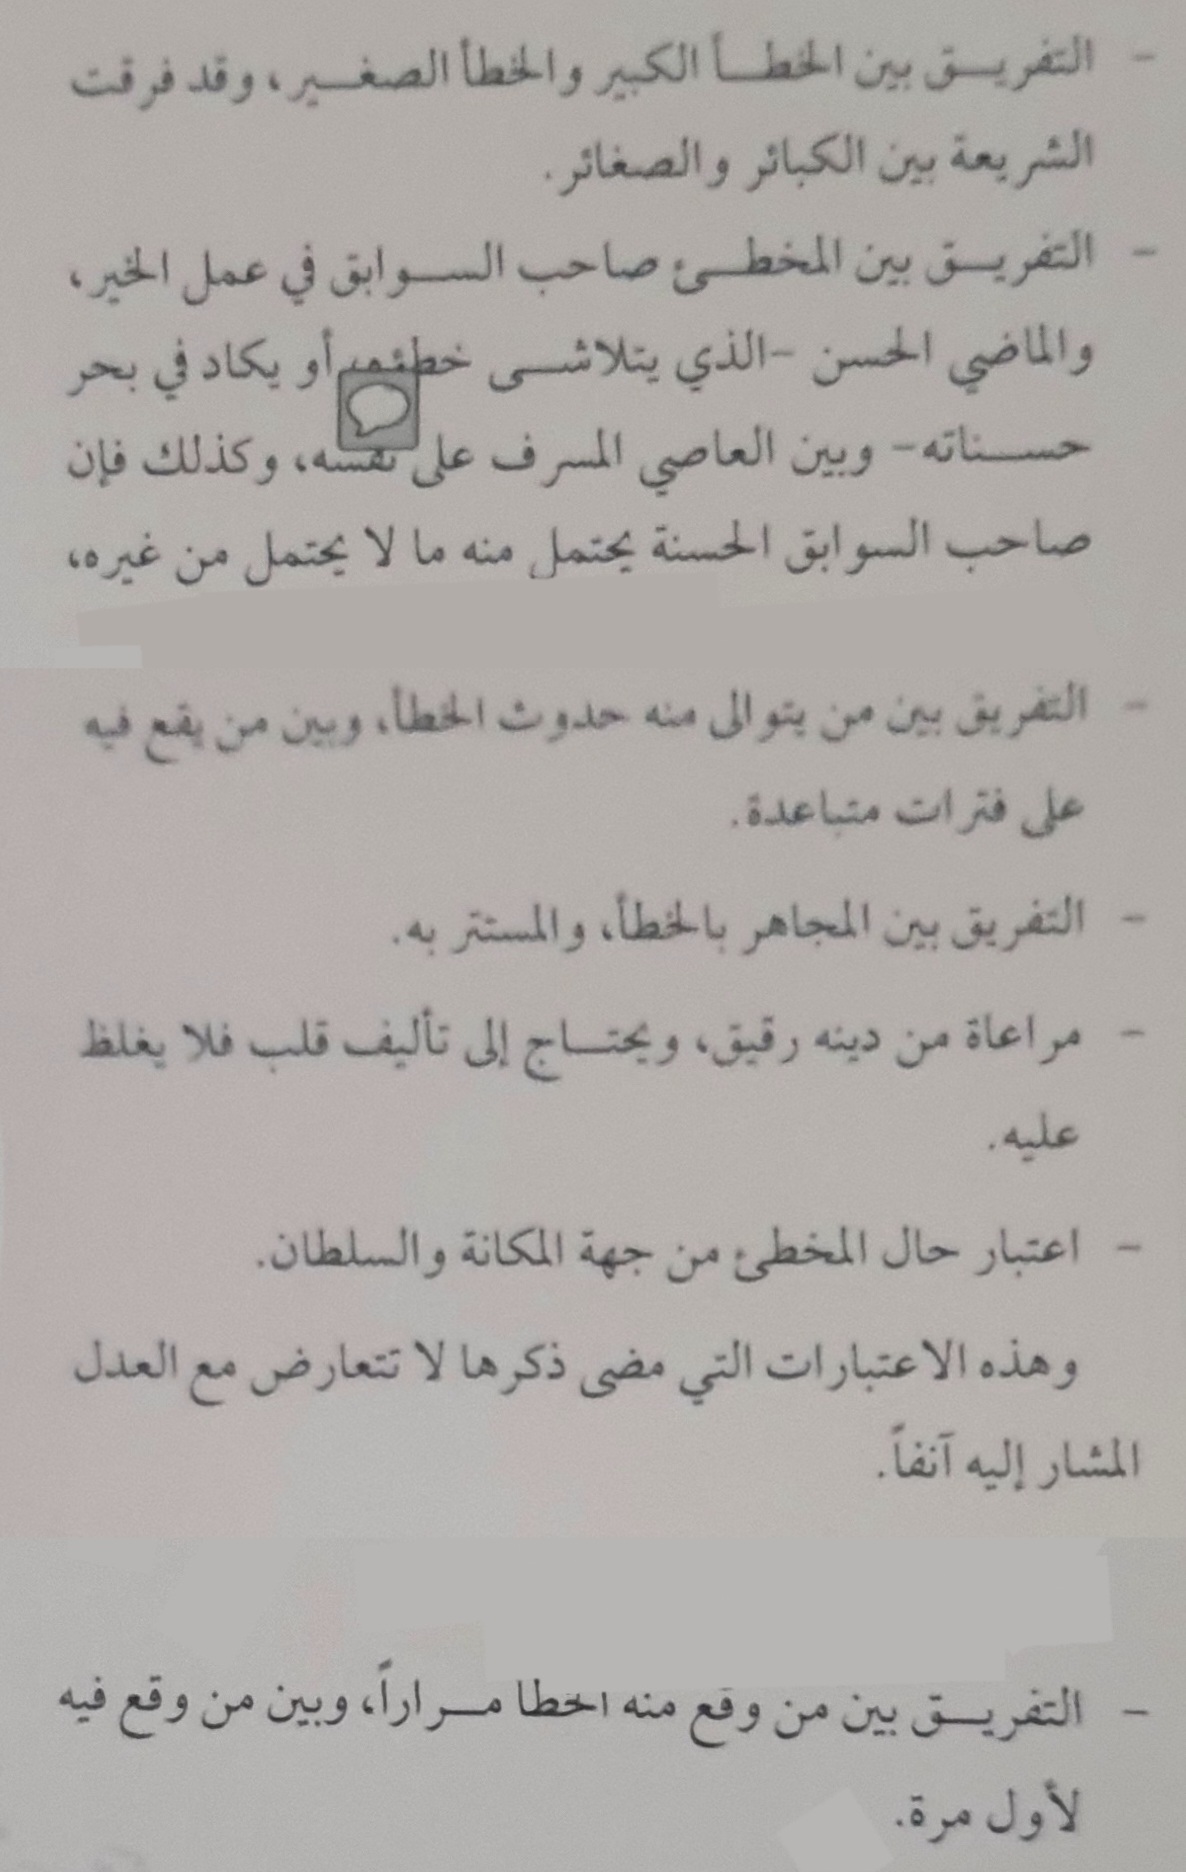 - التفريق بين الخطأ الكبير والخطأ الصغير، وقد فرقت
الشريعة بين الكبائر والصغائر.
- التفريق بين المخطئ صاحب السوابق في عمل الخير،
والماضي الحسن -الذي يتلاشى خطئه، أو يكاد في بحر
حسناته- وبين العاصي المسرف على نفسه، وكذلك فإن
صاحب السوابق الحسنة يحتمل منه ما لا يحتمل من غيره،
- التفريق بين من يتوالى منه حدوث الخطأ، وبين من يقع فيه
على فترات متباعدة.
- التفريق بين المجاهر بالخطأ، والمستتر به.
- مراعاة من دينه رقيق، ويحتاج إلى تأليف قلب فلا يغلظ
عليه.
- اعتبار حال المخطئ من جهة المكانة والسلطان.
وهذه الاعتبارات التي مضى ذكرها لا تتعارض مع العدل
المشار إليه آنفاً.
- التفريق بين من وقع منه الخطأ مراراً، وبين من وقع فيه
لأول مرة.